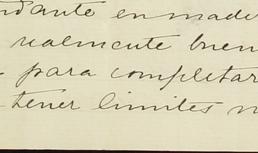 ndante en made
ualmente buen
para completar
tener limites n